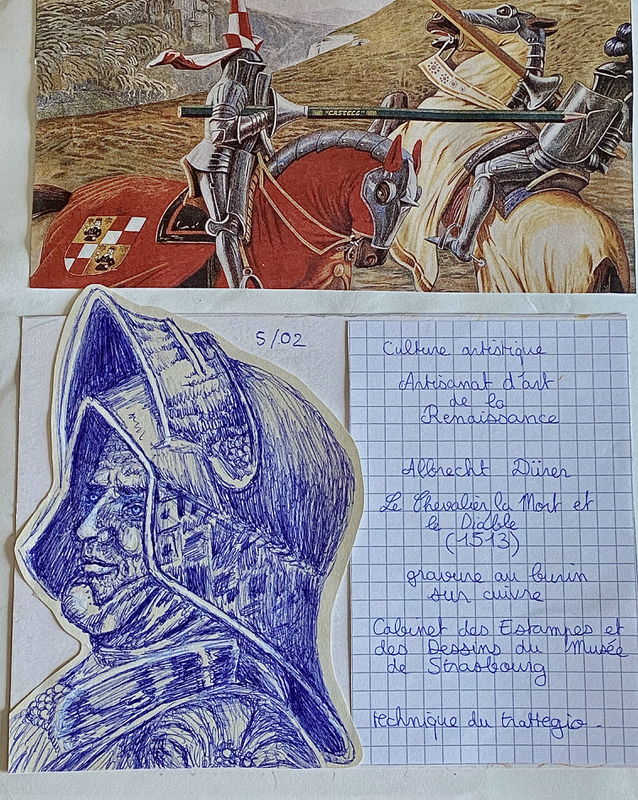 "CASTELL"
5/02
Culture artistique
Artisanat d'art
de la
Renaissance
Albrecht Dürer
Le Chevalier, la Mort et
le Diable
(1513)
gravure au burin
sur cuivre
Cabinet des Estampes et
des Dessins du Musée
de Strasbourg
technique du trattegio.